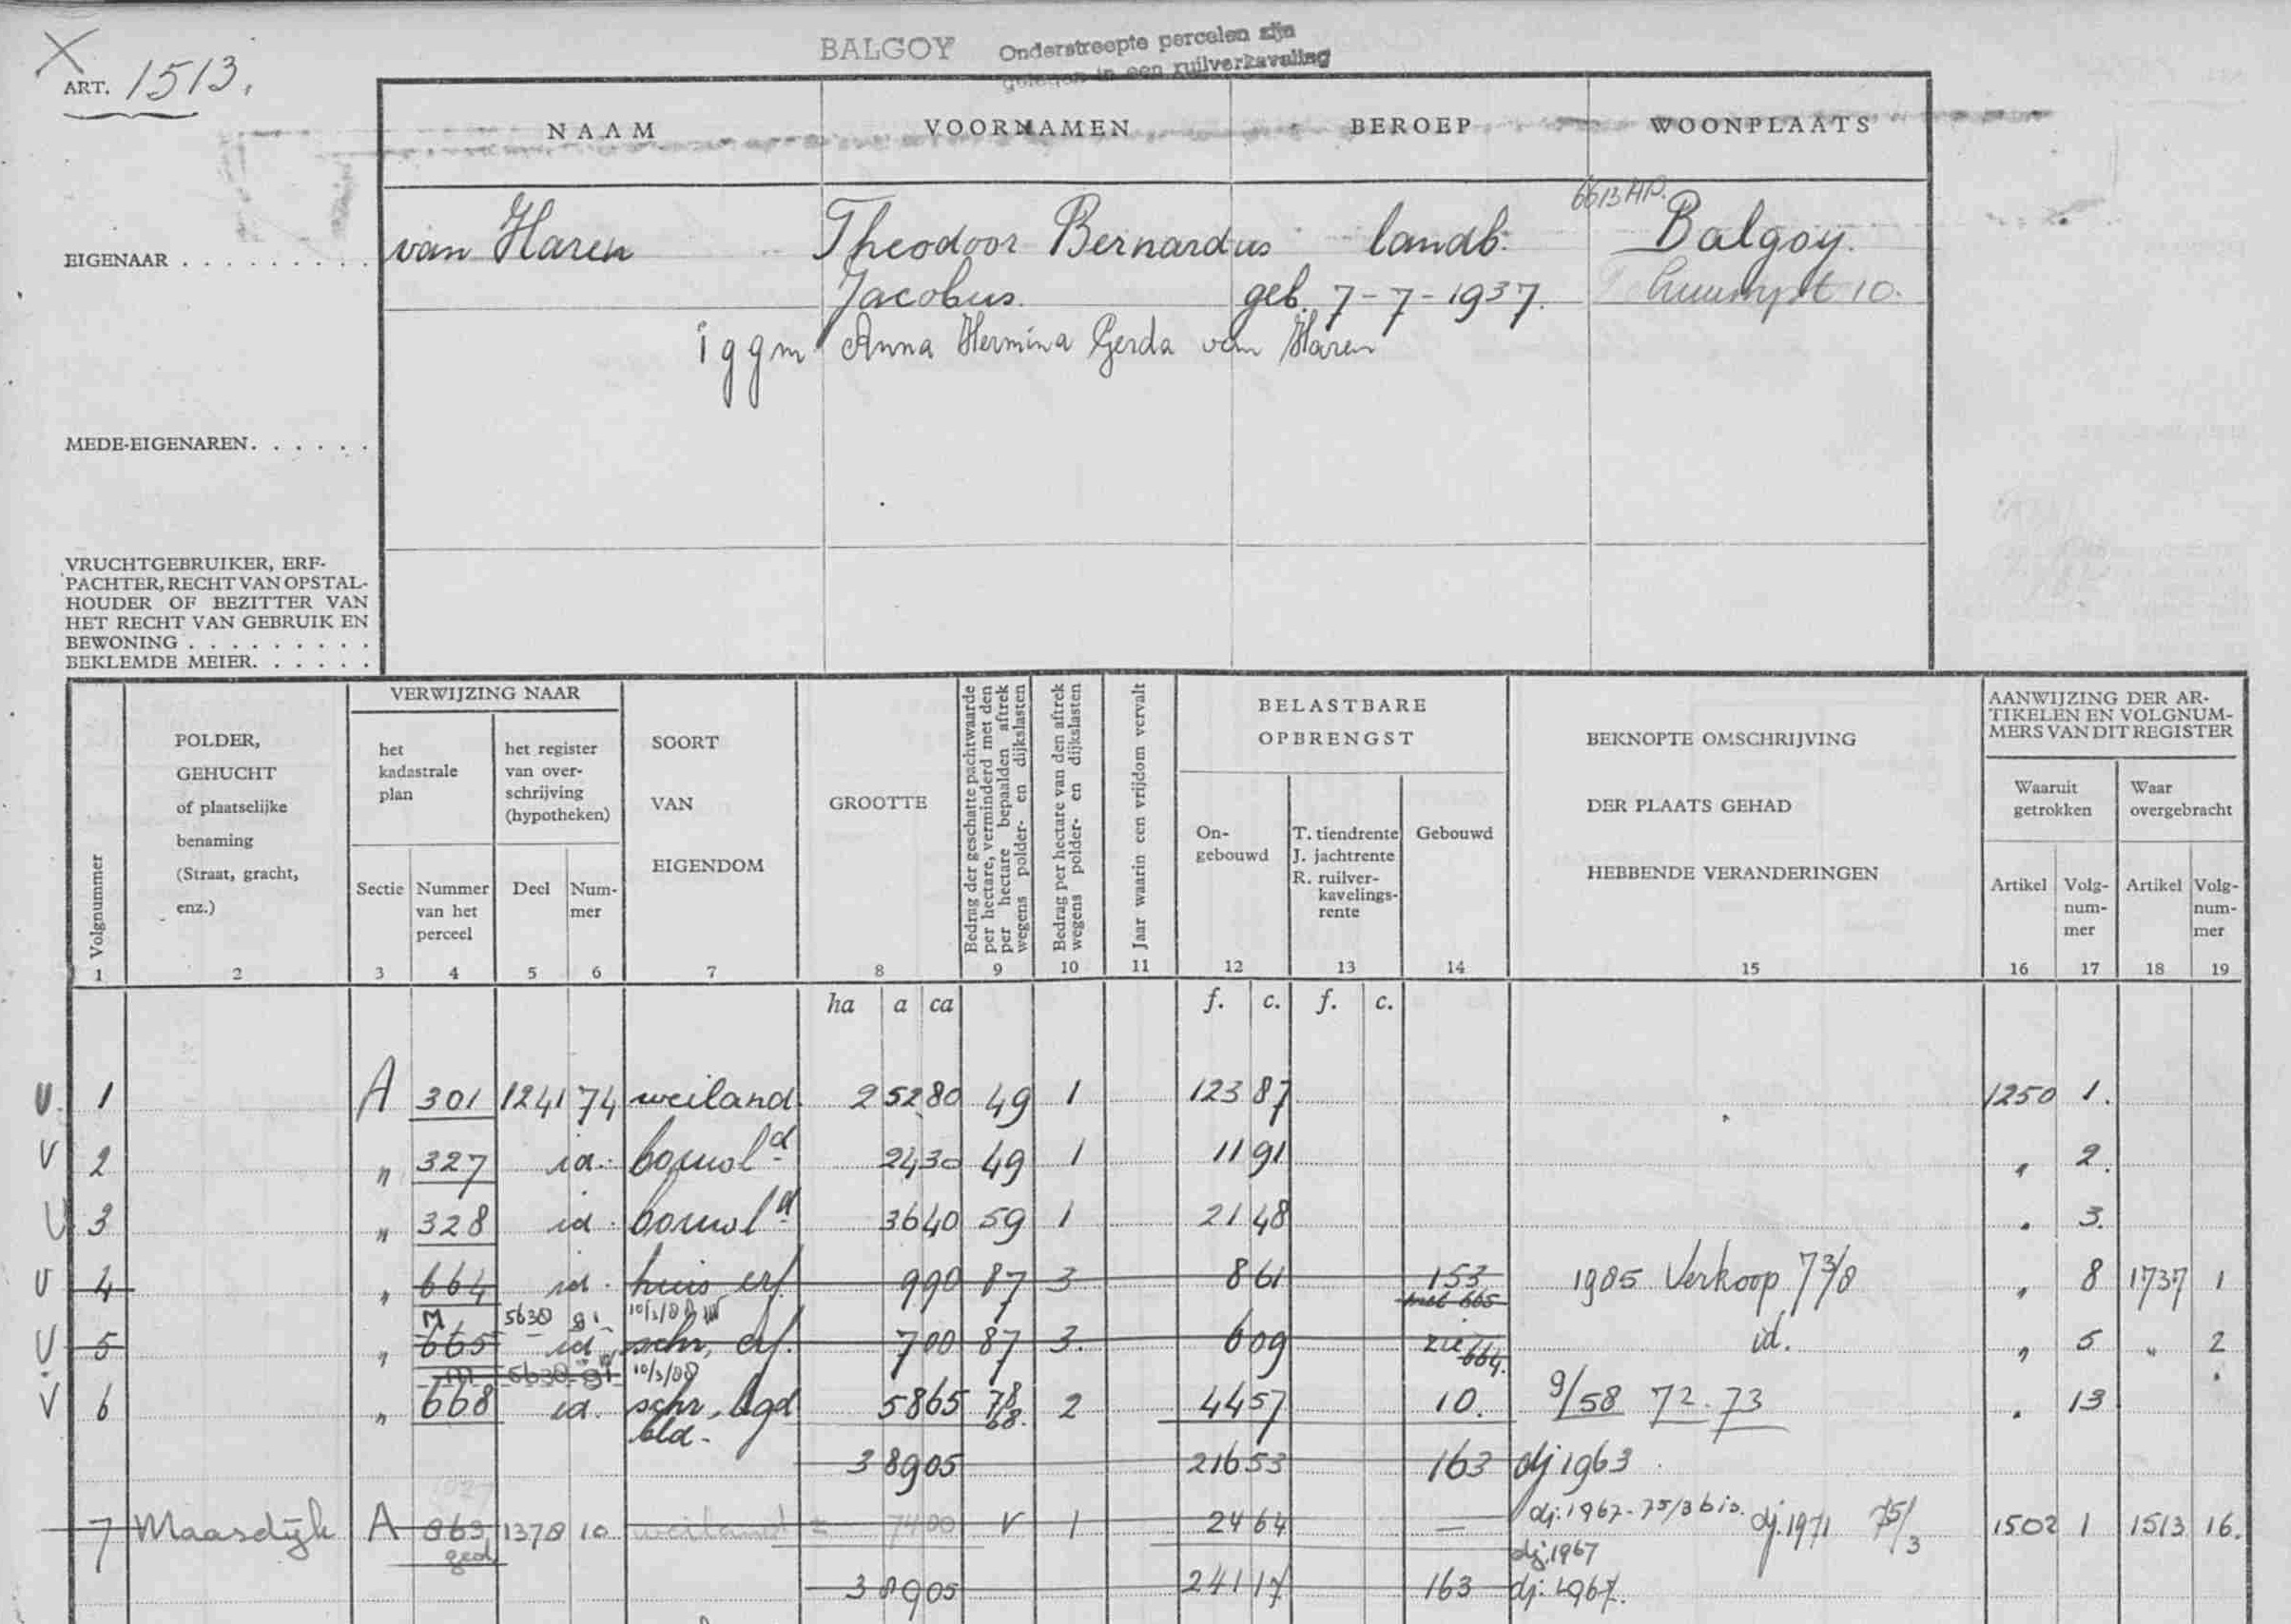 BALGOY Onderstreepte percelen zijn
gelegen in een ruilverkaveling
ART. 1513.
NAAM VOORNAMEN BEROEP WOONPLAATS
6613 AP.
EIGENAAR van Haren Theodoor Bernardus landb. Balgoy.
Jacobus. geb. 7-7-1937. 10.
i g g m Anna Hermina Gerda van Haren
MEDE-EIGENAREN
VRUCHTGEBRUIKER, ERF-
PACHTER, RECHT VAN OPSTAL-
HOUDER OF BEZITTER VAN
HET RECHT VAN GEBRUIK EN
BEWONING
BEKLEMDE MEIER
Volgnummer
POLDER,
GEHUCHT
of plaatselijke
benaming
(Straat, gracht,
enz.)
VERWIJZING NAAR
het
kadastrale
plan
het register
van over-
schrijving
(hypotheken)
Sectie
Nummer
van het
perceel
Deel
Num-
mer
SOORT
VAN
EIGENDOM
GROOTTE
Bedrag der geschatte pachtwaarde
per hectare, verminderd met den
per hectare bepaalden aftrek
wegens polder- en dijkslasten
Bedrag per hectare van den aftrek
wegens polder- en dijkslasten
Jaar waarin een vrijdom vervalt
BELASTBARE
OPBRENGST
On-
gebouwd
T. tiendrente
J. jachtrente
R. ruilver-
kavelings-
rente
Gebouwd
BEKNOPTE OMSCHRIJVING
DER PLAATS GEHAD
HEBBENDE VERANDERINGEN
AANWIJZING DER AR-
TIKELEN EN VOLGNUM-
MERS VAN DIT REGISTER
Waaruit
getrokken
Waar
overgebracht
Artikel
Volg-
num-
mer
Artikel
Volg-
num-
mer
1 2 3 4 5 6 7 8 9 10 11 12 13 14 15 16 17 18 19
ha a ca f. c. f. c.
1 A 301 1241 74 weiland 2 52 80 49 1 123 87 1250 1.
2 " 327 id. bouwld 24 30 49 1 11 91 " 2.
3 " 328 id. bouwld 36 40 59 1 21 48 " 3.
4 " 664 id. huis erf 9 90 87 3 8 61 153 1985 Verkoop 73/8 " 8 1737 1
met 665
M 5630 91 10/3/88
5 " 665 id schr, erf. 7 00 87 3. 6 09 zie 664. id. " 5 " 2
M 5630 91 10/3/88
6 " 668 id. schr, bgd 58 65 78 2 44 57 10. 9/58 72-73 " 13
bld- 68.
3 89 05 216 53 163 dj 1963
dj. 1967-75/3 bis.
7 Maasdijk A 863 1378 10 weiland 74 00 v 1 24 64 — dj. 1971 75/3 1502 1 1513 16.
ged. dj. 1967
3 89 05 241 17 163 dj. 1967.